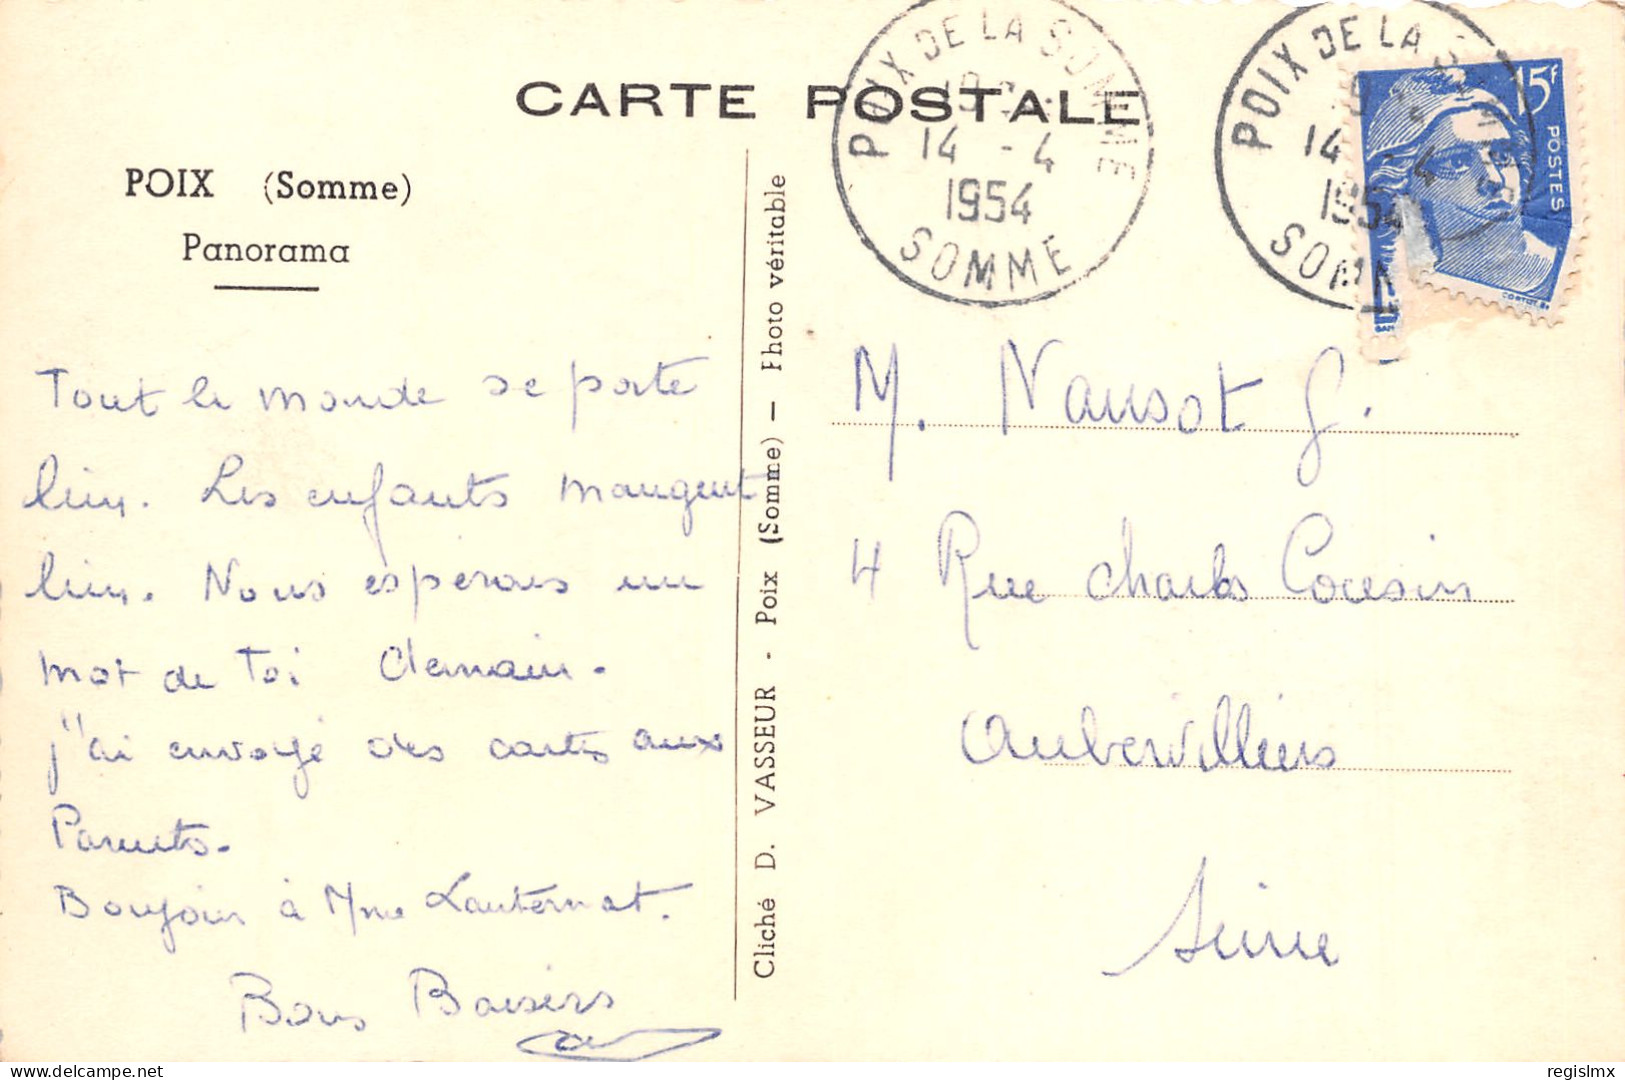 CARTE POSTALE
POIX (Somme)
Panorama
POIX DE LA SOMME
14 - 4
1954
SOMME
POIX DE LA SOMME
14 - 4
1954
SOMM
15f
POSTES
Cliché D. VASSEUR - Poix (Somme) — Photo véritable
Tout le monde se porte
bien. Les enfants mangent
bien. Nous esperons un
mot de Toi demain.
j'ai envoyé des cartes aux
Parents.
Bonjour à Mme Lauternat.
Bons Baisers
M. Nausot G.
4 Rue Charles Cousin
Aubervilliers
Seine
delcampe.net
regislmx